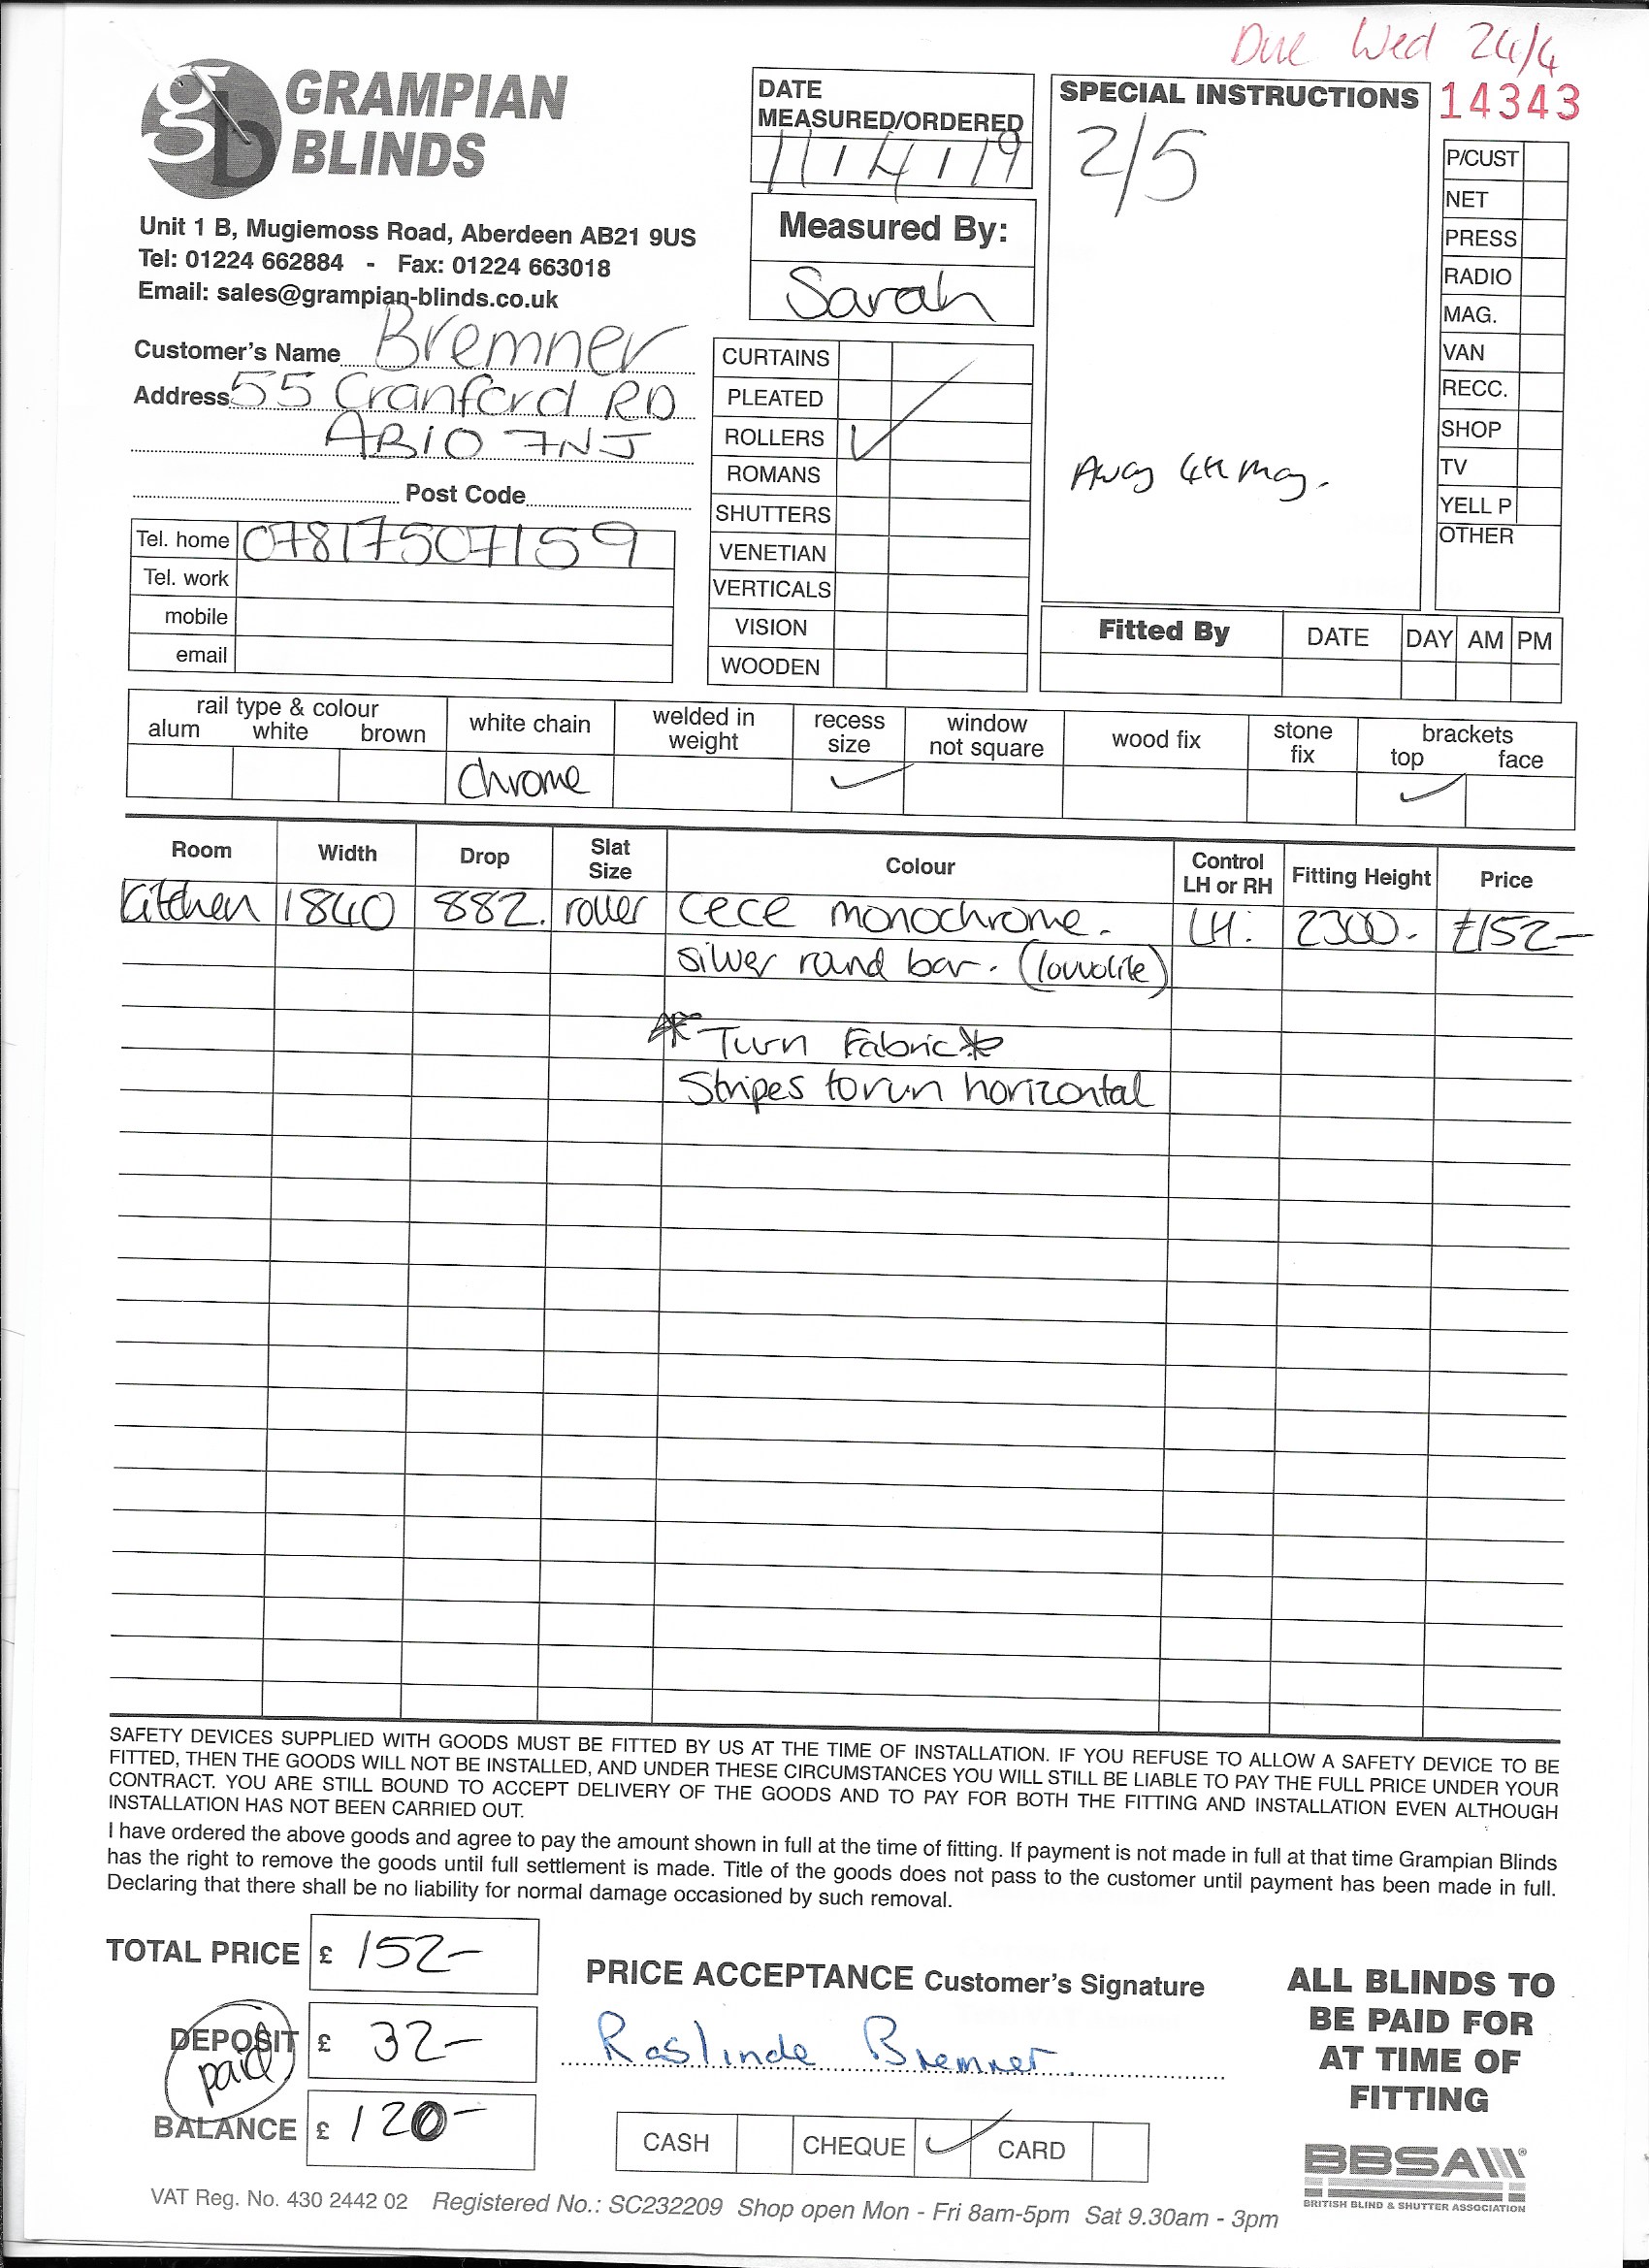 Due Wed 24/4
GRAMPIAN
BLINDS
Unit 1 B, Mugiemoss Road, Aberdeen AB21 9US
Tel: 01224 662884 - Fax: 01224 663018
Email: sales@grampian-blinds.co.uk
Customer's Name Bremner
Address 55 Cranford RD
AB10 7NJ
Post Code
Tel. home 07817507159
Tel. work
mobile
email
DATE
MEASURED/ORDERED
11/4/19
Measured By:
Sarah
CURTAINS
PLEATED
ROLLERS ✓
ROMANS
SHUTTERS
VENETIAN
VERTICALS
VISION
WOODEN
SPECIAL INSTRUCTIONS
2/5
Away 4th May.
14343
P/CUST
NET
PRESS
RADIO
MAG.
VAN
RECC.
SHOP
TV
YELL P
OTHER
Fitted By DATE DAY AM PM
rail type & colour
alum white brown
white chain
chrome
welded in
weight
recess
size
✓
window
not square
wood fix
stone
fix
brackets
top face
✓
Room Width Drop Slat Size Colour Control LH or RH Fitting Height Price
Kitchen 1840 882. roller cece monochrome. LH. 2300. £152-
silver round bar. (louvolite)
* Turn Fabric *
Stripes to run horizontal
SAFETY DEVICES SUPPLIED WITH GOODS MUST BE FITTED BY US AT THE TIME OF INSTALLATION. IF YOU REFUSE TO ALLOW A SAFETY DEVICE TO BE
FITTED, THEN THE GOODS WILL NOT BE INSTALLED, AND UNDER THESE CIRCUMSTANCES YOU WILL STILL BE LIABLE TO PAY THE FULL PRICE UNDER YOUR
CONTRACT. YOU ARE STILL BOUND TO ACCEPT DELIVERY OF THE GOODS AND TO PAY FOR BOTH THE FITTING AND INSTALLATION EVEN ALTHOUGH
INSTALLATION HAS NOT BEEN CARRIED OUT.
I have ordered the above goods and agree to pay the amount shown in full at the time of fitting. If payment is not made in full at that time Grampian Blinds
has the right to remove the goods until full settlement is made. Title of the goods does not pass to the customer until payment has been made in full.
Declaring that there shall be no liability for normal damage occasioned by such removal.
TOTAL PRICE £ 152-
DEPOSIT £ 32-
paid
BALANCE £ 120-
PRICE ACCEPTANCE Customer's Signature
Roslinde Bremner
CASH CHEQUE ✓ CARD
ALL BLINDS TO
BE PAID FOR
AT TIME OF
FITTING
BBSA
BRITISH BLIND & SHUTTER ASSOCIATION
VAT Reg. No. 430 2442 02 Registered No.: SC232209 Shop open Mon - Fri 8am-5pm Sat 9.30am - 3pm